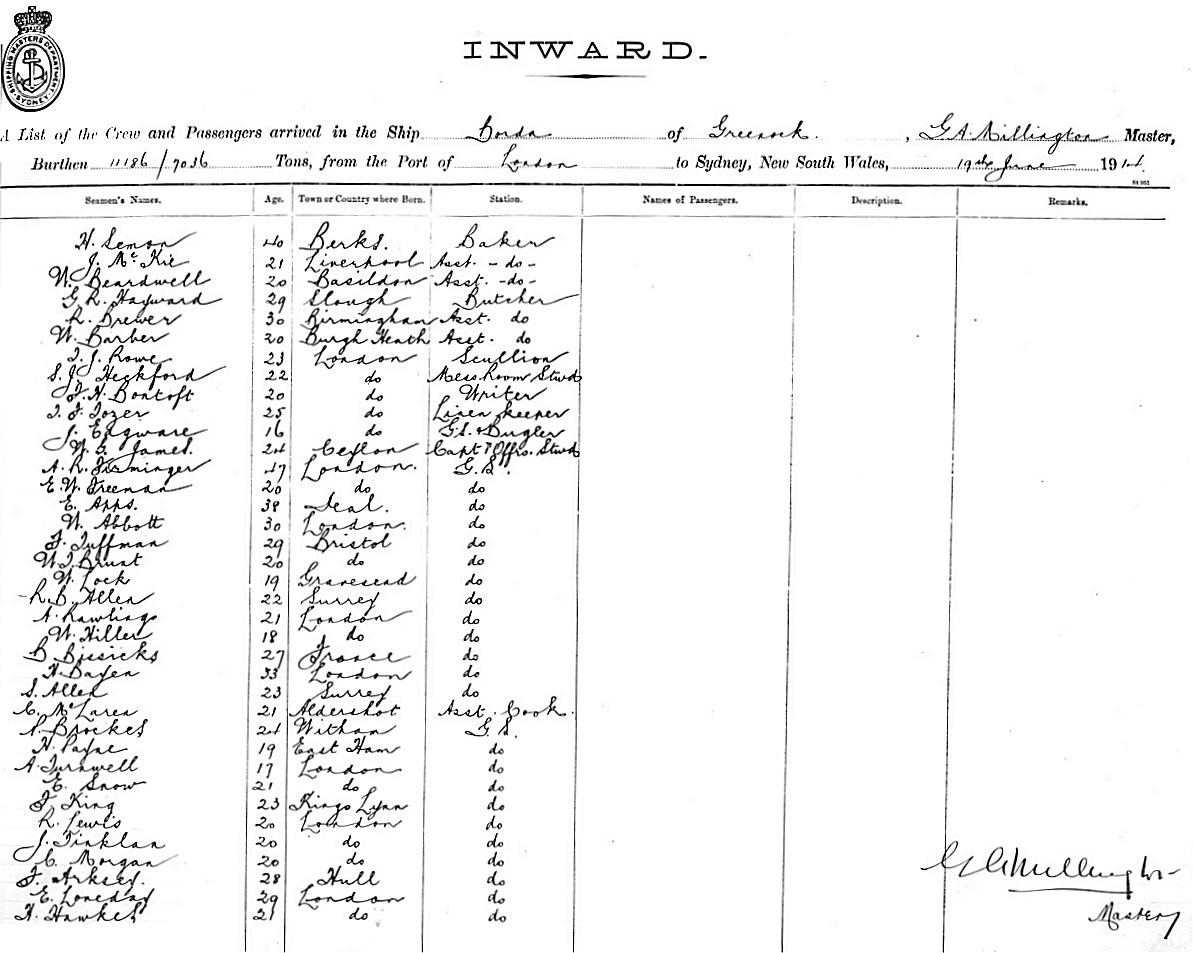 SHIPPING MASTERS DEPARTMENT. SYDNEY.
INWARD.
A List of the Crew and Passengers arrived in the Ship Borda of Greenock. , G A Millington Master,
Burthen 11186/7036 Tons, from the Port of London to Sydney, New South Wales, 19th June 1914.
Seamen's Names. Age. Town or Country where Born. Station. Names of Passengers. Description. Remarks.
H. Semon 40 Berks. Baker
J. McKie 21 Liverpool Asst. -do-
W. Beardwell 20 Basildon Asst. -do-
G. R. Hayward 29 Slough Butcher
R. Brewer 30 Birmingham Asst. do
W. Barber 20 Burgh Heath Asst. do
T. J. Rowe 23 London Scullion
S. J. Heckford 22 do Mess Room Stwd
J. H. Bontoft 20 do Writer
T. F. Tozer 25 do Linen keeper
J. Edgware 16 do G.S. & Bugler
W. G. James. 24 Ceylon Capt & Offrs. Stwd
A. R. Firminger 47 London. G.S.
E. W. Freeman 20 do do
E. Apps. 38 Deal. do
W. Abbott 30 London. do
F. Tuffman 29 Bristol do
W. T. Brunt 20 do do
W. Lock 19 Gravesend do
R. B. Allen 22 Surrey do
A. Rawlings 21 London do
W. Hiller 18 do do
B. Bissicks 27 France do
H. Bayen 33 London do
S. Allen 23 Surrey do
C. McLaren 21 Aldershot Asst. Cook.
Brockes 24 Witham G.S.
H. Payne 19 East Ham do
A. Turnwell 17 London do
E. Snow 21 do do
F. King 23 Kings Lynn do
R. Lewis 20 London do
J. Tinklan 20 do do
C. Morgan 20 do do
F. Arksey. 28 Hull do
E. Loveday 29 London do
H. Hawkes 21 do do
G A Millington
Master